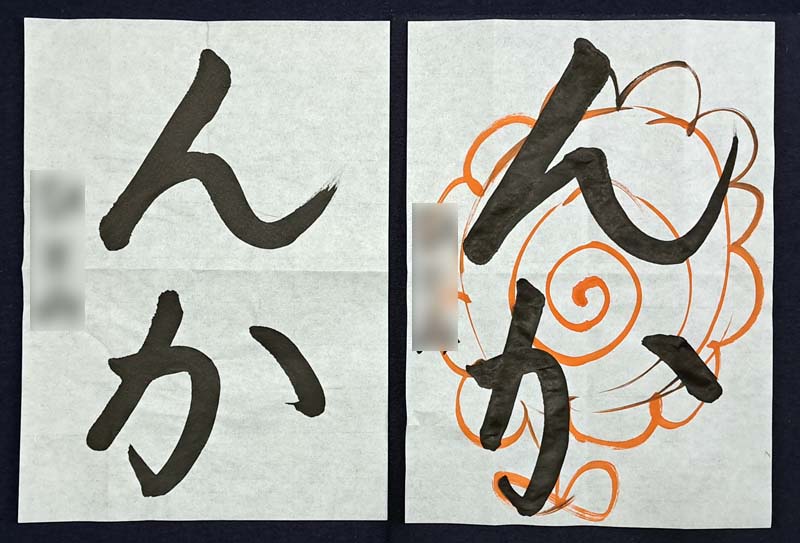 んか
んか